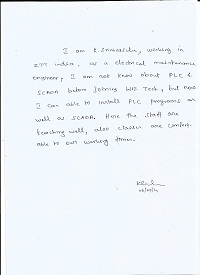 I am K. Srinivasulu, working in
ZTT india, as a electrical maintenance
engineer, I am not know about PLC &
SCADA before Joining WIE Tech, but now
I can able to install PLC programs as
well as SCADA. Here the staff are
teaching well, also classes are comfort-
able to our working times.